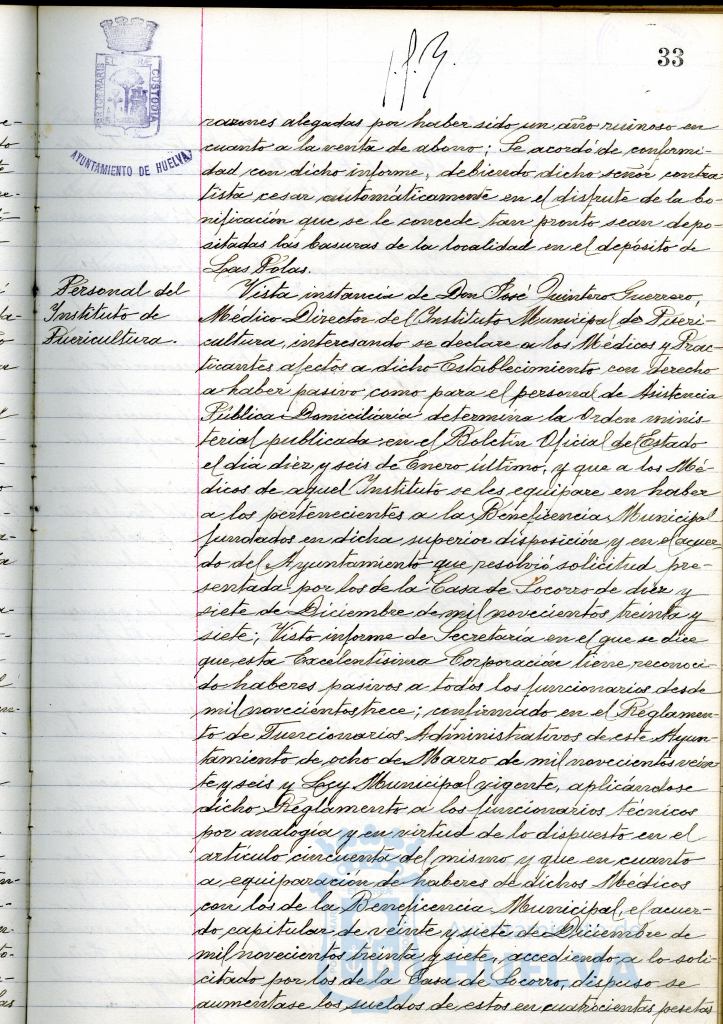 33
PORTUS MARIS ET TERRAE CUSTODIA
AYUNTAMIENTO DE HUELVA
razones alegadas por haber sido un año ruinoso en
cuanto a la venta de abono; Se acordó de conformi-
dad con dicho informe, debiendo dicho señor contra-
tista cesar automáticamente en el disfrute de la bo-
nificación que se le concede tan pronto sean depo-
sitadas las basuras de la localidad en el depósito de
Las Polas.
Personal del
Instituto de
Puericultura.
Vista instancia de Don José Quintero Guerrero,
Médico-Director del Instituto Municipal de Pueri-
cultura, interesando se declare a los Médicos y Prac-
ticantes afectos a dicho Establecimiento con derecho
a haber pasivo, como para el personal de Asistencia
Pública Domiciliaria determina la Orden minis-
terial publicada en el Boletín Oficial del Estado
el día diez y seis de Enero último, y que a los Mé-
dicos de aquel Instituto se les equipare en haber
a los pertenecientes a la Beneficencia Municipal
fundados en dicha superior disposición y en el acuer-
do del Ayuntamiento que resolvió solicitud pre-
sentada por los de la Casa de Socorro de diez y
siete de Diciembre de mil novecientos treinta y
siete; Visto informe de Secretaria en el que se dice
que esta Excelentisima Corporación tiene reconoci-
do haberes pasivos a todos los funcionarios desde
mil novecientos trece; confirmado en el Reglamen-
to de Funcionarios Administrativos de este Ayun-
tamiento de ocho de Marzo de mil novecientos vein-
te y seis y Ley Municipal vigente, aplicándose
dicho Reglamento a los funcionarios técnicos
por analogia y en virtud de lo dispuesto en el
artículo cincuenta del mismo y que en cuanto
a equiparación de haberes de dichos Médicos
con los de la Beneficencia Municipal, el acuer-
do capitular de veinte y siete de Diciembre de
mil novecientos treinta y siete, accediendo a lo soli-
citado por los de la Casa de Socorro, dispuso se
aumentase los sueldos de estos en cuatrocientas pesetas
Ayuntamiento de
HUELVA